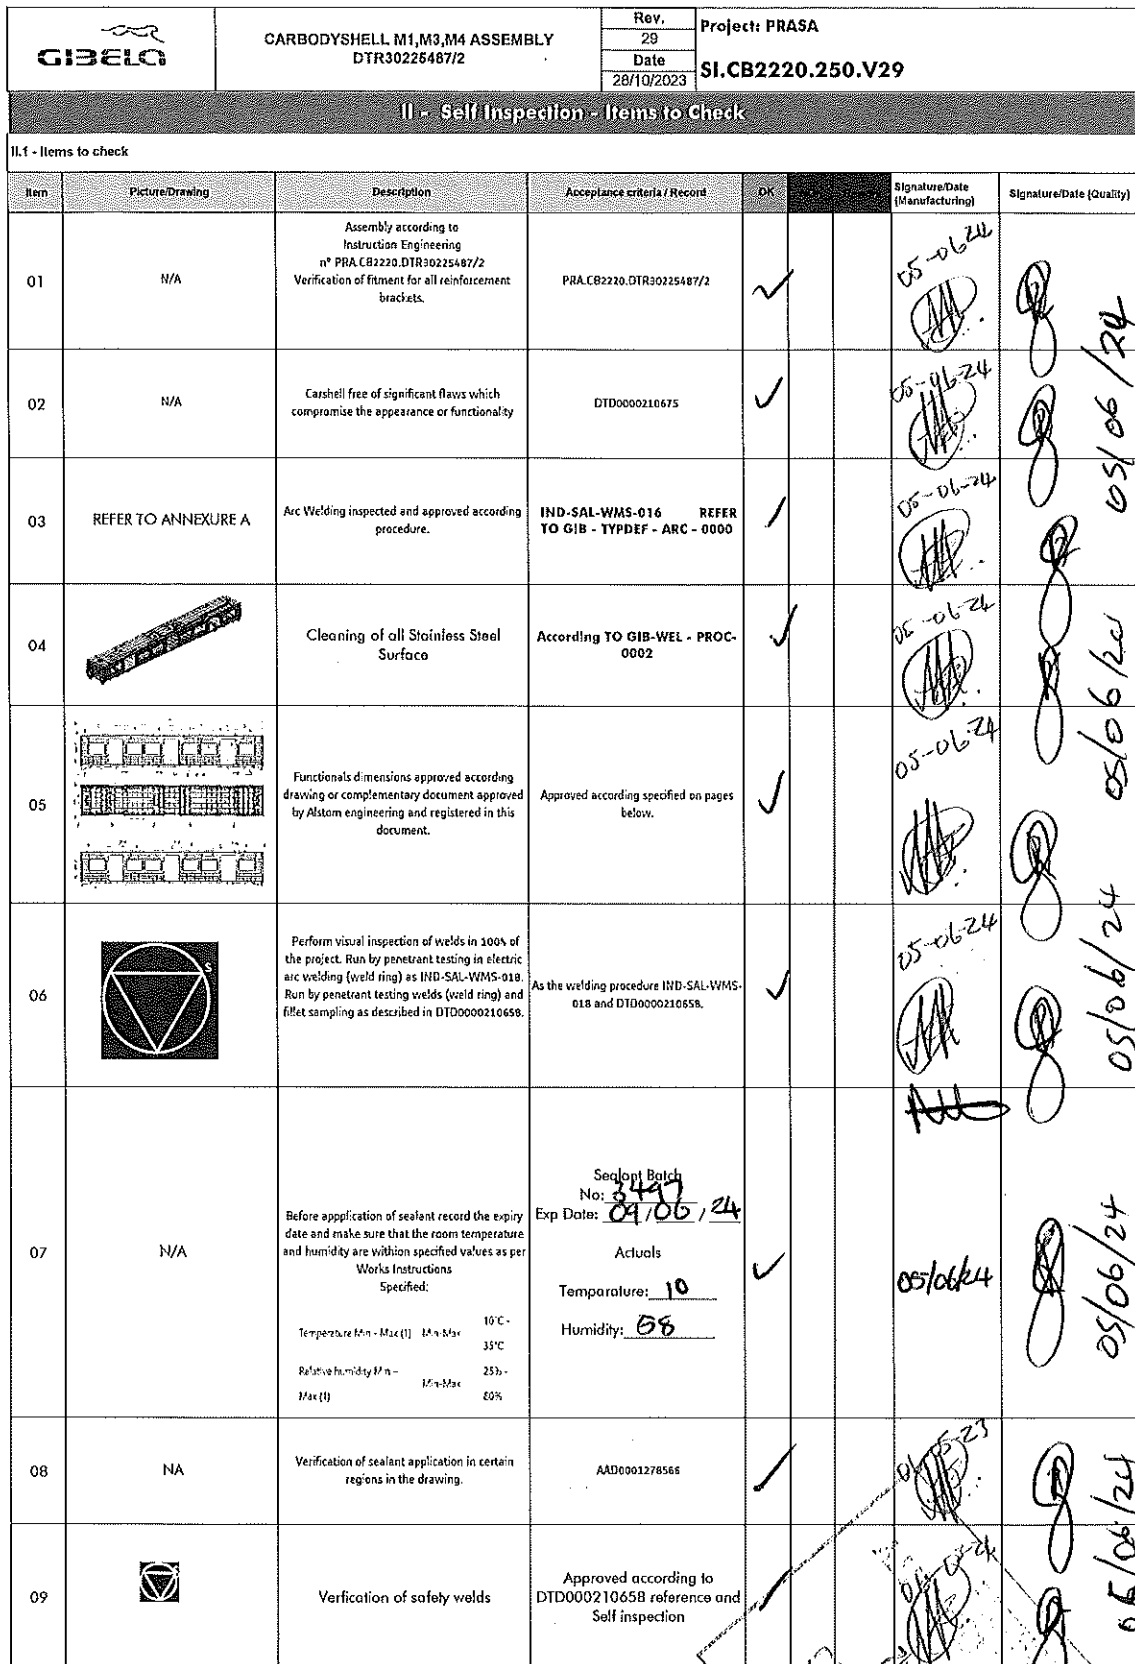 GIBELA
CARBODYSHELL M1,M3,M4 ASSEMBLY
DTR30225487/2
Rev.
29
Date
28/10/2023
Project: PRASA
SI.CB2220.250.V29
II - Self Inspection - Items to Check
II.1 - Items to check
Item
Picture/Drawing
Description
Acceptance criteria / Record
OK
Signature/Date
(Manufacturing)
Signature/Date (Quality)
01
N/A
Assembly according to
Instruction Engineering
n° PRA.CB2220.DTR30225487/2
Verification of fitment for all reinforcement
brackets.
PRA.CB2220.DTR30225487/2
05-06-24
05/06/24
02
N/A
Carshell free of significant flaws which
compromise the appearance or functionality
DTD0000210675
05-06-24
03
REFER TO ANNEXURE A
Arc Welding inspected and approved according
procedure.
IND-SAL-WMS-016 REFER
TO GIB - TYPDEF - ARC - 0000
05-06-24
04
Cleaning of all Stainless Steel
Surface
According TO GIB-WEL - PROC-
0002
05-06-24
05/06/24
05
Functionals dimensions approved according
drawing or complementary document approved
by Alstom engineering and registered in this
document.
Approved according specified on pages
below.
05-06-24
06
S
Perform visual inspection of welds in 100% of
the project. Run by penetrant testing in electric
arc welding (weld ring) as IND-SAL-WMS-018.
Run by penetrant testing welds (weld ring) and
fillet sampling as described in DTD0000210658.
As the welding procedure IND-SAL-WMS-
018 and DTD0000210658.
05-06-24
05/06/24
07
N/A
Before appplication of sealant record the expiry
date and make sure that the room temperature
and humidity are withion specified values as per
Works Instructions
Specified:
Temperature Min - Max (1) Min-Max 10°C -
35°C
Relative humidity Min –
Max (1)
Min-Max
25% -
80%
Sealant Batch
No: 3497
Exp Date: 09/06/24
Actuals
Temparature: 10
Humidity: 58
05/06/24
05/06/24
08
NA
Verification of sealant application in certain
regions in the drawing.
AAD0001278566
09
Verfication of safety welds
Approved according to
DTD000210658 reference and
Self inspection